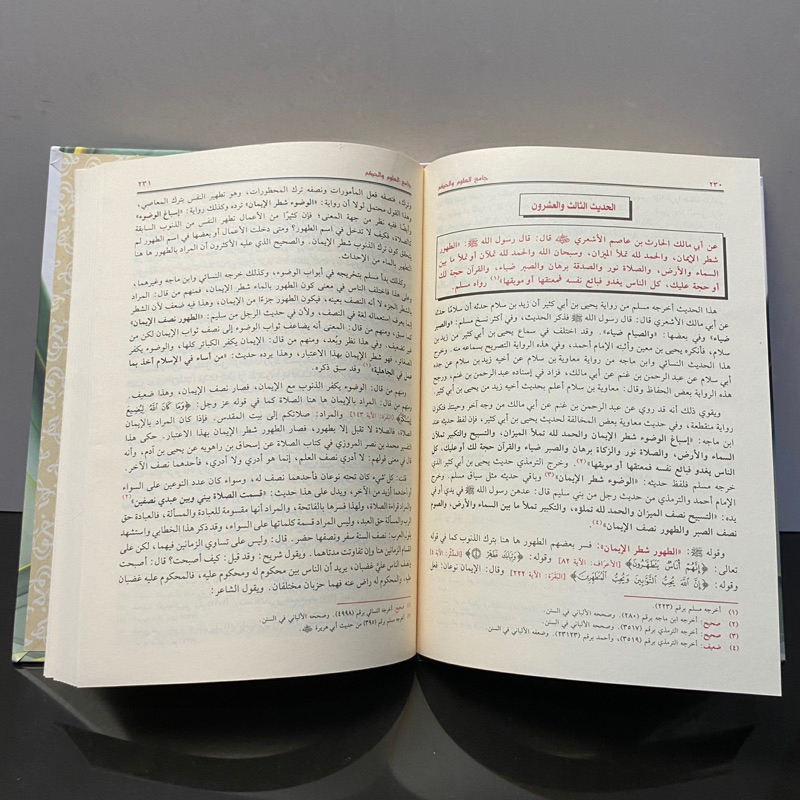 ٢٣٠
جامع العلوم والحكم
الحديث الثالث والعشرون
عن أبي مالك الحارث بن عاصم الأشعري ﷺ قال: قال رسول الله ﷺ: «الطهور
شطر الإيمان، والحمد لله تملأ الميزان، وسبحان الله والحمد لله تملآن أو تملأ ما بين
السماء والأرض، والصلاة نور والصدقة برهان والصبر ضياء، والقرآن حجة لك
أو حجة عليك، كل الناس يغدو فبائع نفسه فمعتقها أو موبقها»(١) رواه مسلم.
هذا الحديث أخرجه مسلم من رواية يحيى بن أبي كثير أن زيد بن سلام حدثه أن سلامًا حدثه
عن أبي مالك الأشعري قال: قال رسول الله ﷺ فذكر الحديث، وفي أكثر نسخ مسلم: «والصبر
ضياء» وفي بعضها: «والصيام ضياء». وقد اختلف في سماع يحيى بن أبي كثير من زيد بن
سلام، فأنكره يحيى بن معين وأثبته الإمام أحمد، وفي هذه الرواية التصريح بسماعه منه. وخرج
هذا الحديث النسائي وابن ماجه من رواية معاوية بن سلام عن أخيه زيد بن سلام عن جده
أبي سلام عن عبد الرحمن بن غنم عن أبي مالك، فزاد في إسناده عبد الرحمن بن غنم، ورجح
هذه الرواية بعض الحفاظ وقال: معاوية بن سلام أعلم بحديث أخيه زيد من يحيى بن أبي كثير.
ويقوي ذلك أنه قد روي عن عبد الرحمن بن غنم عن أبي مالك من وجه آخر وحينئذ فتكون
رواية منقطعة، وفي حديث معاوية بعض المخالفة لحديث يحيى بن أبي كثير، فإن لفظ حديثه عند
ابن ماجه: «إسباغ الوضوء شطر الإيمان والحمد لله تملأ الميزان، والتسبيح والتكبير تملآن
السماء والأرض، والصلاة نور والزكاة برهان والصبر ضياء والقرآن حجة لك أو عليك، كل
الناس يغدو فبائع نفسه فمعتقها أو موبقها»(٢). وخرج الترمذي حديث يحيى بن أبي كثير الذي
خرجه مسلم فلفظ حديثه: «الوضوء شطر الإيمان»(٣) وباقي حديثه مثل سياق مسلم. وخرج
الإمام أحمد والترمذي من حديث رجل من بني سليم قال: عدهن رسول الله ﷺ في يدي أو في
يده: «التسبيح نصف الميزان والحمد لله تملؤه، والتكبير تملأ ما بين السماء والأرض، والصوم
نصف الصبر والطهور نصف الإيمان»(٤).
وقوله ﷺ: «الطهور شطر الإيمان»: فسر بعضهم الطهور ها هنا بترك الذنوب كما في قوله
تعالى: ﴿إِنَّهُمْ أُنَاسٌ يَتَطَهَّرُونَ﴾ [الأعراف: الآية ٨٢] وقوله: ﴿وَثِيَابَكَ فَطَهِّرْ﴾ [المدثر: الآية ٤]
وقوله: ﴿إِنَّ اللَّهَ يُحِبُّ التَّوَّابِينَ وَيُحِبُّ الْمُتَطَهِّرِينَ﴾ [البقرة: الآية ٢٢٢] وقال: الإيمان نوعان: فعل
(١) أخرجه مسلم برقم (٢٢٣).
(٢) صحيح: أخرجه ابن ماجه برقم (٢٨٠). وصححه الألباني في السنن.
(٣) صحيح: أخرجه الترمذي برقم (٣٥١٧). وصححه الألباني في السنن.
(٤) ضعيف: أخرجه الترمذي برقم (٣٥١٩)، وأحمد برقم (٢٣١٢٣). وضعفه الألباني في السنن.
جامع العلوم والحكم
٢٣١
وترك، فنصفه فعل المأمورات ونصفه ترك المحظورات، وهو تطهير النفس بترك المعاصي،
وهذا القول محتمل لولا أن رواية: «الوضوء شطر الإيمان» ترده وكذلك رواية: «إسباغ الوضوء»
وأيضًا ففيه نظر من جهة المعنى؛ فإن كثيرًا من الأعمال تطهر النفس من الذنوب السابقة
كالصلاة، فكيف لا تدخل في اسم الطهور؟ ومتى دخلت الأعمال أو بعضها في اسم الطهور لم
يتحقق كون ترك الذنوب شطر الإيمان. والصحيح الذي عليه الأكثرون أن المراد بالطهور ها هنا
التطهير بالماء من الأحداث.
وكذلك بدأ مسلم بتخريجه في أبواب الوضوء، وكذلك خرجه النسائي وابن ماجه وغيرهما،
وعلى هذا فاختلف الناس في معنى كون الطهور بالماء شطر الإيمان، فمنهم من قال: المراد
بالشطر الجزء لا أنه النصف بعينه، فيكون الطهور جزءًا من الإيمان، وهذا فيه ضعف لأن الشطر
إنما يعرف استعماله لغة في النصف، ولأن في حديث الرجل من سليم: «الطهور نصف الإيمان»
كما سبق، ومنهم من قال: المعنى أنه يضاعف ثواب الوضوء إلى نصف ثواب الإيمان لكن من
غير تضعيف. وفي هذا نظر وبعد، ومنهم من قال: الإيمان يكفر الكبائر كلها، والوضوء يكفر
الصغائر، فهو شطر الإيمان بهذا الاعتبار، وهذا يرده حديث: «من أساء في الإسلام أخذ بما
عمل في الجاهلية»(١) وقد سبق ذكره.
ومنهم من قال: الوضوء يكفر الذنوب مع الإيمان، فصار نصف الإيمان، وهذا ضعيف.
ومنهم من قال: المراد بالإيمان ها هنا الصلاة كما في قوله عز وجل: ﴿وَمَا كَانَ اللَّهُ لِيُضِيعَ
إِيمَانَكُمْ﴾ [البقرة: الآية ١٤٣] والمراد: صلاتكم إلى بيت المقدس، فإذا كان المراد بالإيمان
الصلاة فالصلاة لا تقبل إلا بطهور، فصار الطهور شطر الإيمان بهذا الاعتبار. حكى هذا
التفسير محمد بن نصر المروزي في كتاب الصلاة عن إسحاق بن راهويه عن يحيى بن آدم، وأنه
قال في معنى قولهم: لا أدري نصف العلم، إنما هو أدري ولا أدري، فأحدهما نصف الآخر.
قلت: كل شيء كان تحته نوعان فأحدهما نصف له، وسواء كان عدد النوعين على السواء
أو أحدهما أزيد من الآخر، ويدل على هذا حديث: «قسمت الصلاة بيني وبين عبدي نصفين»(٢)
والمراد قراءة الصلاة، ولهذا فسرها بالفاتحة، والمراد أنها مقسومة للعبادة والمسألة، فالعبادة حق
الرب والمسألة حق العبد، وليس المراد قسمة كلماتها على السواء، وقد ذكر هذا الخطابي واستشهد
بقول العرب: نصف السنة سفر ونصفها حضر. قال: وليس على تساوي الزمانين فيهما، لكن على
انقسام الزمانين لها وإن تفاوتت مدتاهما. وبقول شريح: وقد قيل: كيف أصبحت؟ قال: أصبحت
ونصف الناس عليَّ غضبان، يريد أن الناس بين محكوم له ومحكوم عليه، فالمحكوم عليه غضبان
والمحكوم له راض عنه فهما حزبان مختلفان. ويقول الشاعر:
(١) صحيح: أخرجه النسائي برقم (٤٩٩٨). وصححه الألباني في السنن.
(٢) أخرجه مسلم برقم (٣٩٥) من حديث أبي هريرة